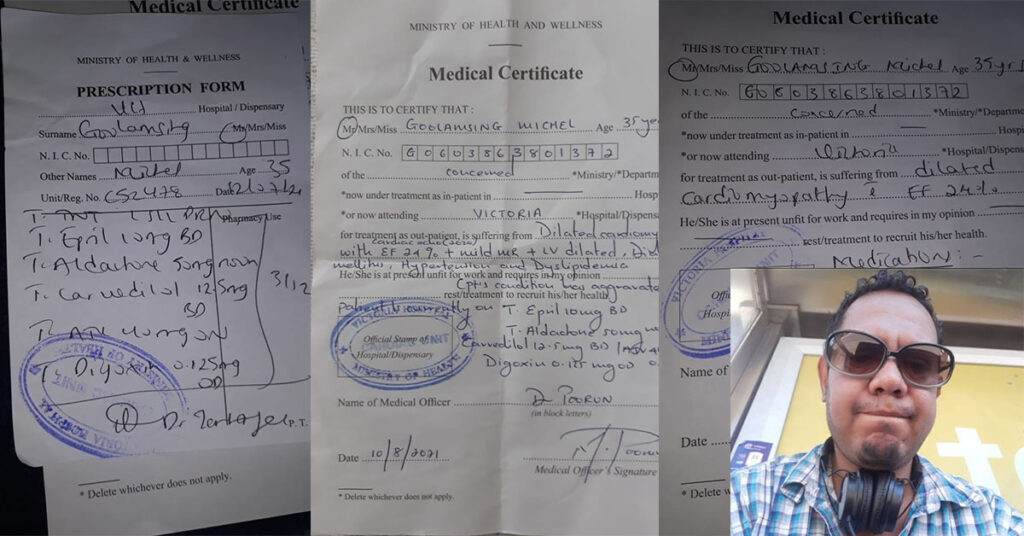 Medical Certificate
MINISTRY OF HEALTH & WELLNESS
PRESCRIPTION FORM
Hospital / Dispensary
Surname Goolamsing Mr/Mrs/Miss
N. I. C. No.
Other Names Michel Age 35
Unit/Reg. No. C52478 Date
Pharmacy Use
T. Epril 10mg BD
T. Aldactone 50mg noon
T. Carvedilol 12.5mg BD
3/12
T. Digoxin 0.125mg OD
Dr
P. T.
* Delete whichever does not apply.
MINISTRY OF HEALTH AND WELLNESS
Medical Certificate
THIS IS TO CERTIFY THAT :
Mr/Mrs/Miss GOOLAMSING MICHEL Age 35 yea
N. I. C. No. G0603863801372
of the concerned *Ministry/*Departm
*now under treatment as in-patient in Hosp
*or now attending VICTORIA *Hospital/Dispensa
for treatment as out-patient, is suffering from Dilated cardiomy
cardiac echo (2020)
with EF 24% + mild MR + LV dilated,
mellitus, Hypertension and Dyslipidemia
He/She is at present unfit for work and requires in my opinion
Cpt's condition has aggravated
rest/treatment to recruit his/her health.
Patient is currently on T. Epril 10mg BD
T. Aldactone 50mg
Carvedilol 12.5mg BD
Digoxin 0.125mg OD
Official Stamp of
Hospital/Dispensary
MINISTRY OF HEALTH
Name of Medical Officer Dr POORUN
(in block letters)
Date 10/8/2021
Medical Officer's Signature
* Delete whichever does not apply.
Medical Certificate
THIS IS TO CERTIFY THAT :
Mr/Mrs/Miss GOOLAMSING Michel Age 35yrs
N. I. C. No. G0603863801372
of the concerned *Ministry/*Departme
*now under treatment as in-patient in Hospi
*or now attending Victoria *Hospital/Dispensa
for treatment as out-patient, is suffering from dilated
Cardiomyopathy & EF 24%
He/She is at present unfit for work and requires in my opinion
rest/treatment to recruit his/her health.
Medication:-
Offic
Hosp
Name of
Date
* Delete w